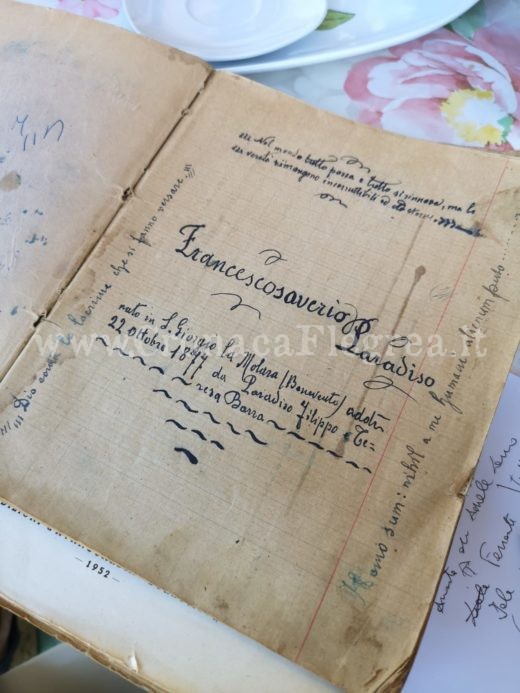 "" Nel mondo tutto passa e tutto si rinnova, ma le
verità rimangono incorruttibili ed eterne. ""
Francescosaverio
Paradiso
nato in S. Giorgio la Molara (Benevento) addì
22 ottobre 1877 da Paradiso Filippo e Te-
resa Barra
"" Dio conta le lacrime che si fanno versare. ""
Homo sum: nihil a me humani alienum puto
www.CronacaFlegrea.it
– 1952 –